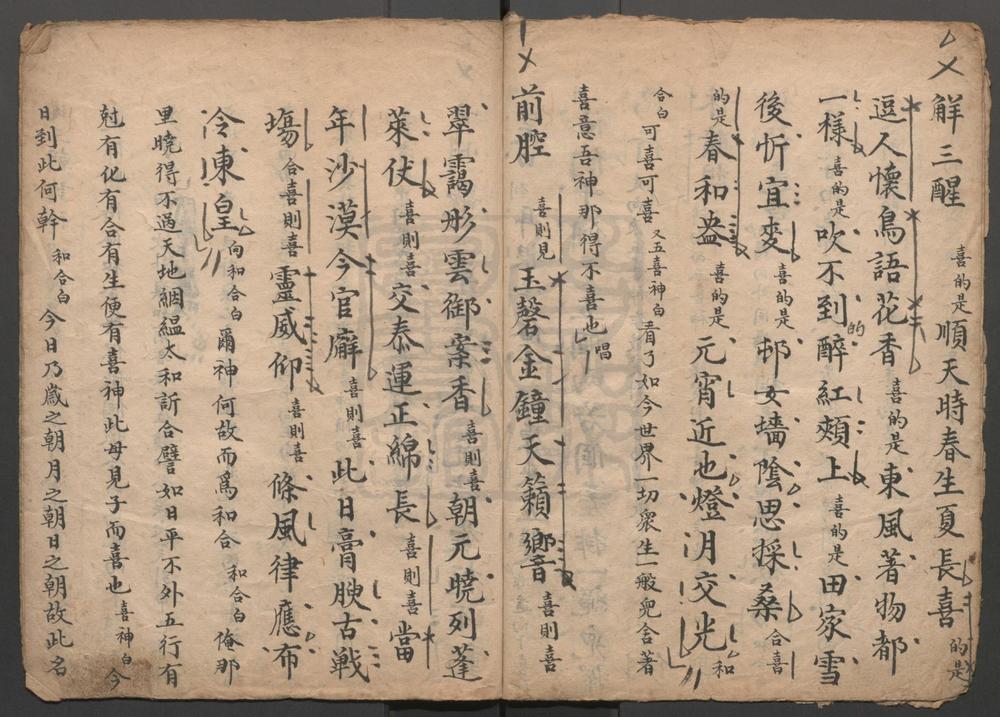 解三酲 喜的是順天時春生夏長喜的是
逗人懷鳥語花香喜的是東風著物都
一樣喜的是吹不到的醉紅頰上喜的是田家雪
後忻宜麥喜的是邨女墻陰思採桑合喜
的是春和盎喜的是元宵近也燈月交光和
合白可喜可喜又五喜神白看了如今世界一切衆生一般兜舍著
喜意吾神那得不喜也唱
前腔 喜則見玉磬金鐘天籟響喜則喜
翠靄彤雲御案香喜則喜朝元曉列蓬
萊伏喜則喜交泰運正綿長喜則喜當
年沙漠今官廨喜則喜此日膏腴古戰
塲合喜則喜靈威仰喜則喜條風律應布
冷東皇向和合白爾神何故而爲和合和合白俺那
里曉得不過天地絪緼太和訢合譬如日平不外五行有
尅有化有合有生便有喜神此母見子而喜也喜神白今
日到此何幹和合白今日乃歲之朝月之朝日之朝故此名